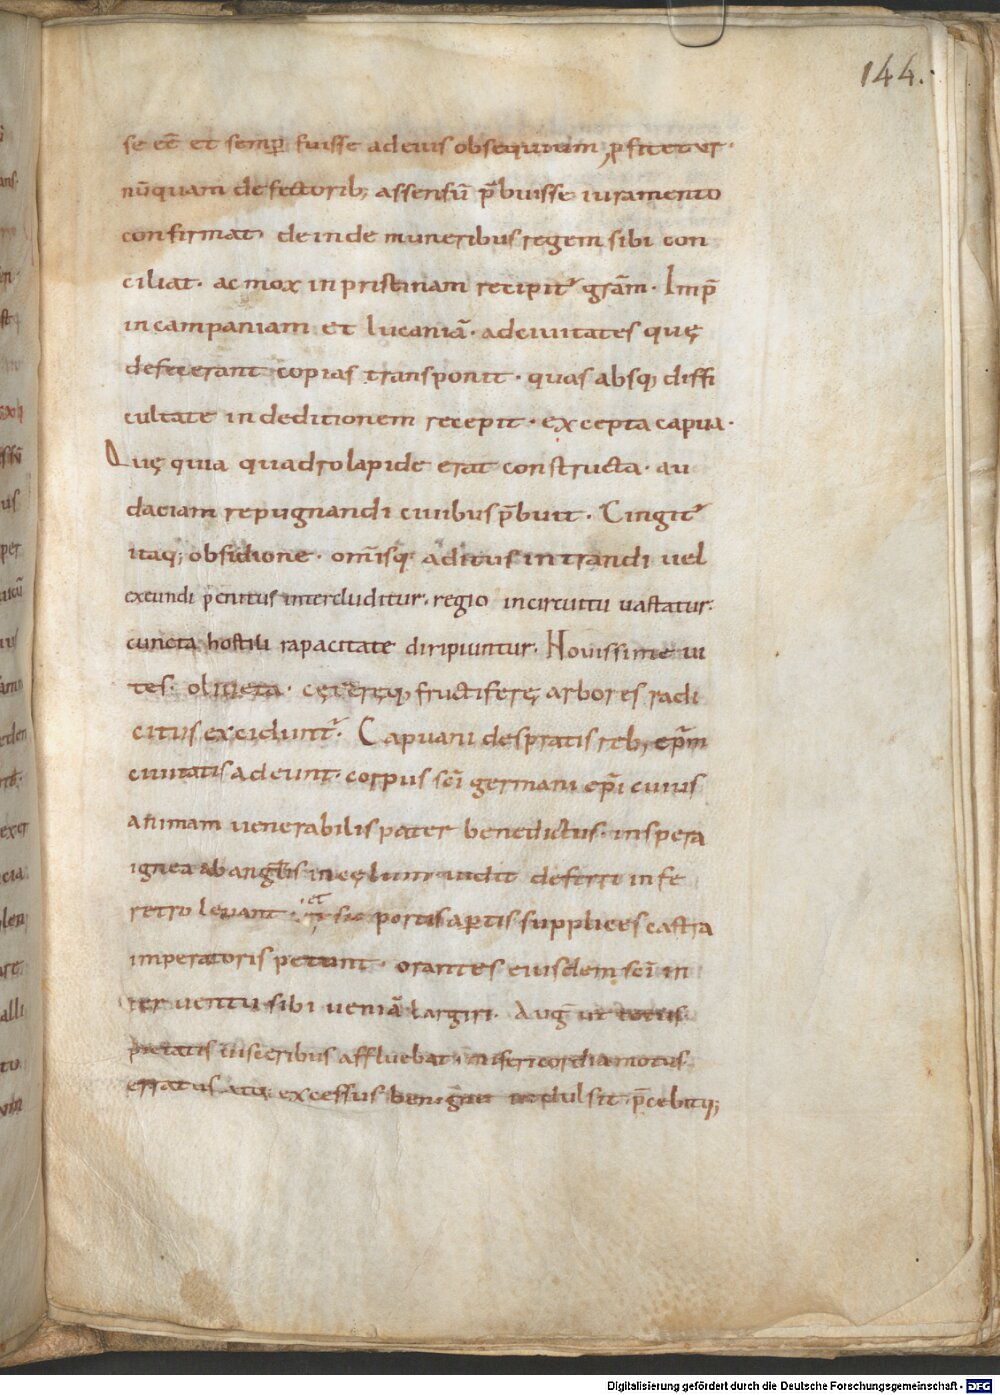 144.
se eē et semp̱ fuisse ad eius obsequium ꝓfitetur·
nūquam defectorib; assensū p̄buisse iuramento
confirmat· deinde muneribus regem sibi con
ciliat· ac mox in pristinam recipit᷒ grām· Imp̄
in campaniam et lucaniā· ad ciuitates quę
defecerant copias transponit· quas absq; diffi
cultate in deditionem recepit· excepta capua·
Quę quia quadro lapide erat constructa· au
daciam repugnandi ciuibus p̄buit· Cingit᷒
itaq; obsidione· om̄isq; aditus intrandi uel
exeundi penitus intercluditur· regio in circuitu uastatur·
cuncta hostili rapacitate diripiuntur· Nouissime ui
tes· oliueta· cęteręq; fructiferę arbores radi
citus exciduntr᷒· Capuani desꝑatis reb; ep̄m
ciuitatis adeunt· corpus sc̄i germani ep̄i cuius
animam uenerabilis pater benedictus· in spera
ignea ab angl̄is in cęlum uidit deferri in fe
retro leuant· et sic portis aꝑtis supplices castra
imperatoris petunt· orantes eiusdem sc̄i in
teruentu sibi ueniā largiri· Auḡ ut totus
pietatis uisceribus affluebat· misericordia motus
erratus atq; excessus benigne indulsit· p̄cebitq;
Digitalisierung gefördert durch die Deutsche Forschungsgemeinschaft - DFG